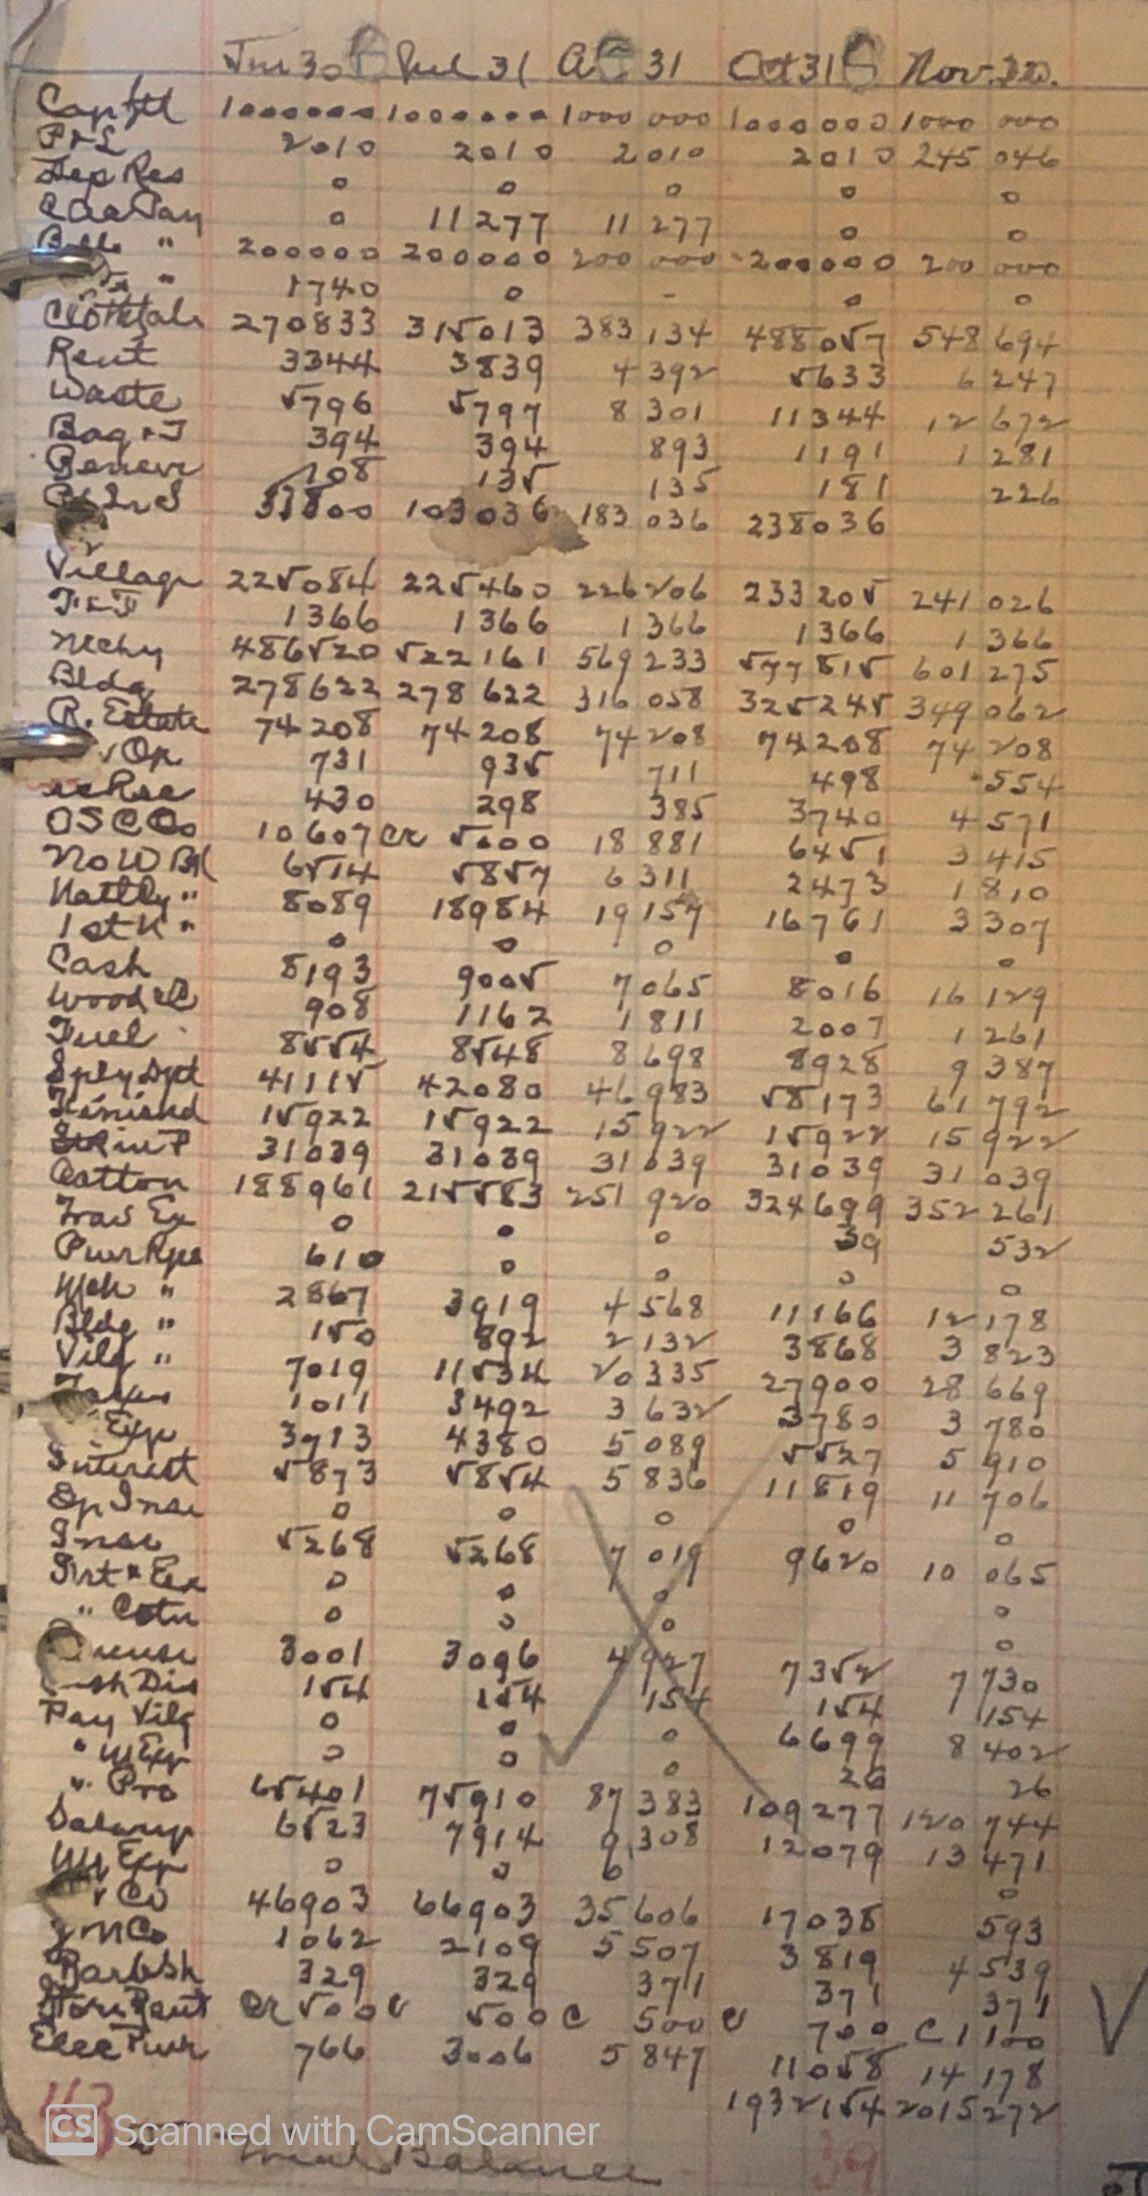 Jun 30 Jul 31 A 31 Oct 31 Nov. 30.
Captl 1000000 1000000 1000 000 1000000 1000 000
P & L 2010 2010 2010 2010 245 046
Dep Res 0 0 0 0 0
Pay 0 11277 11 277 0 0
Bills " 200000 200000 200 000 200000 200 000
" 1740 0 - 0 0
Cloth Sale 270833 315013 383 134 488057 548 694
Rent 3344 3839 4 392 5633 6 247
Waste 5796 5797 8 301 11344 12 672
Bag & T 394 394 893 1191 1 281
108 135 135 181 226
103036 183 036 238036
Village 225084 225460 226 206 233205 241 026
1366 1366 1 366 1366 1 366
Mchy 486520 522161 569 233 577515 601 275
Bldg 278622 278622 316 058 325245 349 062
R. Estate 74208 74208 74 208 74208 74 208
Op 731 935 711 498 554
Rec 430 298 385 3740 4 571
OSCCo 10607 cr 5000 18 881 6451 3 415
No W Bk 6514 5857 6 311 2473 1 810
" 8089 18984 19 157 16761 3 307
1st N " 0 0 0 0 0
Cash 8193 9005 7 065 8016 16 129
Wood & C 908 1162 1 811 2007 1 261
Fuel 8554 8548 8 698 8928 9 387
Sply Dpt 41115 42080 46 983 58173 61 792
Finished 15922 15922 15 922 15922 15 922
in P 31039 31039 31 039 31039 31 039
Cotton 188961 215583 251 920 324699 352 261
Trav Ex 0 0 0 39 532
Pwr Rps 610 0 0 0 0
Mch " 2867 3919 4 568 11166 12 178
Bldg " 150 892 2 132 3868 3 823
Vilg " 7019 11534 20 335 27900 28 669
Taxes 1011 3492 3 632 3780 3 780
Exp 3713 4380 5 089 5527 5 910
Interest 5873 5854 5 836 11819 11 706
Insu 0 0 0 0 0
Insu 5268 5268 7 019 9620 10 065
Int & Ex 0 0 0 0
" Cotn 0 0 0 0
3001 3096 4 927 7352 7 730
Dis 154 154 154 154 154
Pay Vilg 0 0 0 6699 8 402
" M Exp 0 0 0 26 26
" Pro 65401 75910 87 383 109277 120 744
Salary 6523 7914 9 308 12079 13 471
Exp 0 0 0 0
Co 46903 66903 35 606 17038 593
Co 1062 2109 5 507 3819 4 539
Barb Sh 329 329 371 371 371
Store Rent Cr 500 C 500 C 500 C 700 C 1 100
Elec Pwr 766 3006 5 847 11058 14 178
1932154 2015272
CS Scanned with CamScanner
Trial Balance